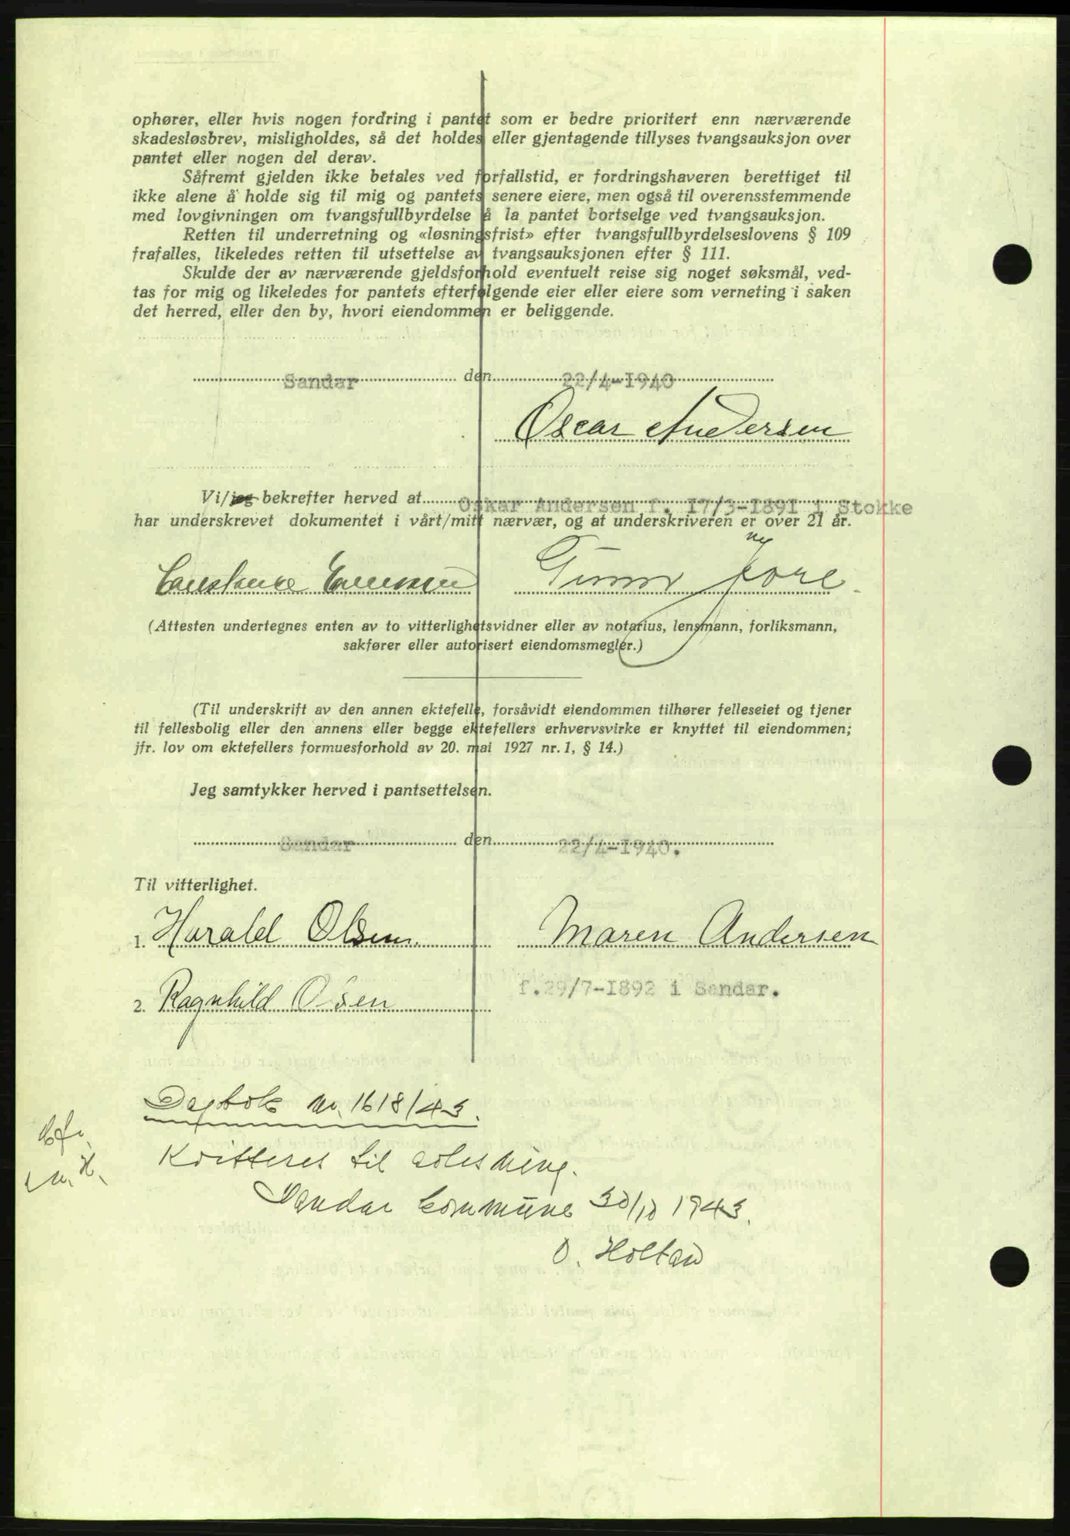 ophører, eller hvis nogen fordring i pantet som er bedre prioritert enn nærværende
skadesløsbrev, misligholdes, så det holdes eller gjentagende tillyses tvangsauksjon over
pantet eller nogen del derav.
Såfremt gjelden ikke betales ved forfallstid, er fordringshaveren berettiget til
ikke alene å holde sig til mig og pantets senere eiere, men også til overensstemmende
med lovgivningen om tvangsfullbyrdelse å la pantet bortselge ved tvangsauksjon.
Retten til underretning og «løsningsfrist» efter tvangsfullbyrdelseslovens § 109
frafalles, likeledes retten til utsettelse av tvangsauksjonen efter § 111.
Skulde der av nærværende gjeldsforhold eventuelt reise sig noget søksmål, ved-
tas for mig og likeledes for pantets efterfølgende eier eller eiere som verneting i saken
det herred, eller den by, hvori eiendommen er beliggende.
Sandar den 22/4-1940
Oscar Andersen
Vi/jeg bekrefter herved at Oskar Andersen f. 17/3-1891 i Stokke
har underskrevet dokumentet i vårt/mitt nærvær, og at underskriveren er over 21 år.
(Attesten undertegnes enten av to vitterlighetsvidner eller av notarius, lensmann, forliksmann,
sakfører eller autorisert eiendomsmegler.)
(Til underskrift av den annen ektefelle, forsåvidt eiendommen tilhører felleseiet og tjener
til fellesbolig eller den annens eller begge ektefellers erhvervsvirke er knyttet til eiendommen;
jfr. lov om ektefellers formuesforhold av 20. mai 1927 nr. 1, § 14.)
Jeg samtykker herved i pantsettelsen.
Sandar den 22/4-1940.
Til vitterlighet.
1. Harald Olsen. Maren Andersen
2. Ragnhild Olsen f.29/7-1892 i Sandar.
Dagbok nr. 1618/43.
Kvitteres til avlesning.
Sandar kommune 30/10 1943.
O. Holtan